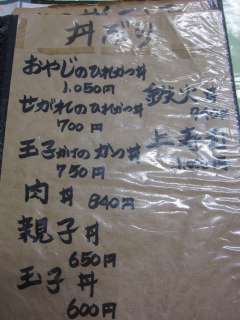 丼ぶり
おやじのひれかつ丼
1,050円
せがれのひれかつ丼
700円
玉子かけのかつ丼
750円
肉丼 840円
親子丼
650円
玉子丼
600円
鉄火丼
上寿司